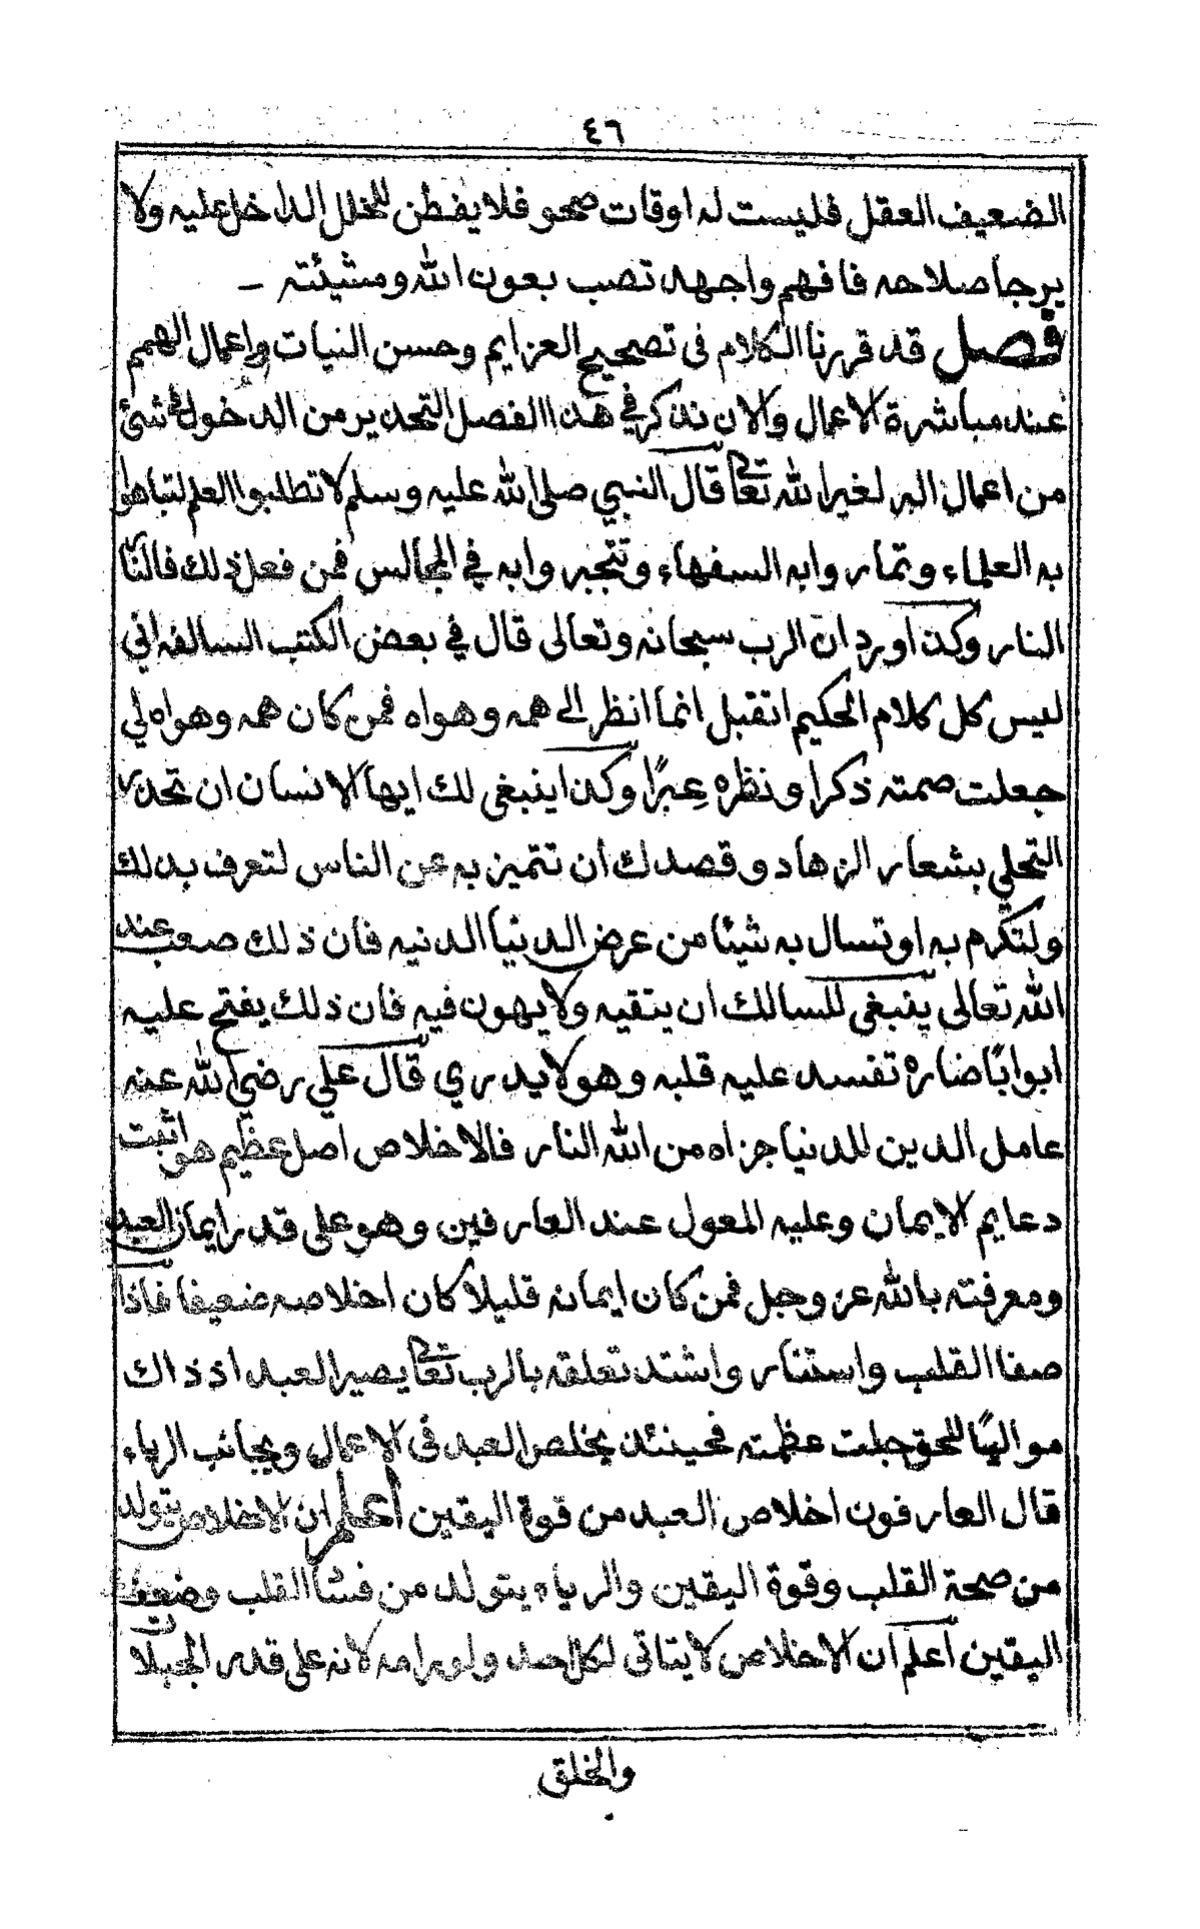 ٤٦
الضعيف العقل فليست له اوقات صحو فلا يفطن للخلل الداخل عليه ولا
يرجا صلاحه فافهم واجهد تصب بعون الله ومشيئته –
فصل قد قررنا الكلام فى تصحيح العزايم وحسن النيات واعمال الهمم
عند مباشرة الاعمال والان نذكر في هذا الفصل التحذير من الدخول في شئ
من اعمال البر لغير الله تعالى قال النبي صلى الله عليه وسلم لا تطلبوا العلم لتباهوا
به العلماء وتماروا به السفهاء وتتجبروا به في المجالس فمن فعل ذلك فالنار
النار وكذا ورد ان الرب سبحانه وتعالى قال في بعض الكتب السالفه اني
ليس كل كلام الحكيم اتقبل انما انظر الى همه وهواه فمن كان همه وهواه لي
جعلت صمته ذكرا ونظره عِبرًا وكذا ينبغي لك ايها الانسان ان تحذر
التحلي بشعار الزهاد وقصدك أن تتميز به عن الناس لتعرف بذلك
ولتكرم به او تسال به شيئا من عرض الدنيا الدنيه فان ذلك صعب عند
الله تعالى ينبغي للسالك ان يتقيه ولا يهون فيه فان ذلك يفتح عليه
ابوابًا ضاره تفسد عليه قلبه وهو لا يدري قال علي رضي الله عنه
عامل الدين للدنيا جزاه من الله النار فالاخلاص اصل عظيم هو اثبت
دعايم الايمان وعليه المعول عند العارفين وهو على قدر ايمان العبد
ومعرفته بالله عز وجل فمن كان ايمانه قليلا كان اخلاصه ضعيفا فاذا
صفا القلب واستنار واشتد تعلقه بالرب تعالى يصير العبد اذ ذاك
مواليًا للحق جلت عظمته فحينئذ يخلص العبد فى الاعمال ويجانب الرياء
قال العارفون اخلاص العبد من قوة اليقين أعلم ان الاخلاص يتولد
من صحة القلب وقوة اليقين والرياء يتولد من القلب وضعف
اليقين أعلم ان الاخلاص لا يتاتى لكل احد ولو رامه لانه على قدر الجبلات
والخلق